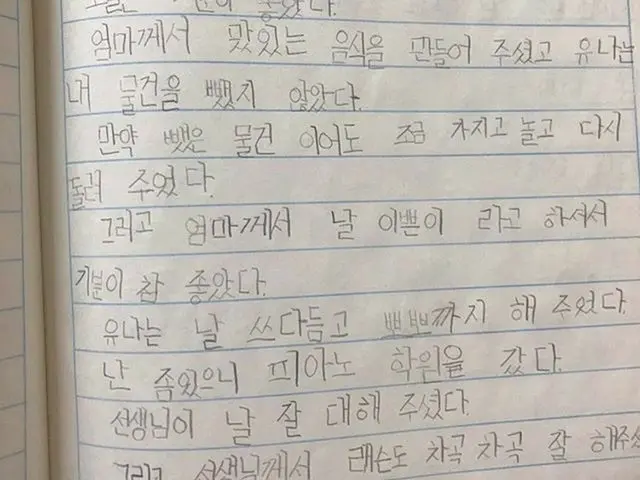 좋았다.
엄마께서 맜있는 음식을 만들어 주셨고 유나는
내 물건을 뺐지 않았다.
만약 뺐은 물건 이어도 조금 가지고 놀고 다시
돌려 주었다.
그리고 엄마께서 날 이쁜이 라고 하셔서
기분이 참 좋았다.
유나는 날 쓰다듬고 뽀뽀까지 해 주었다.
난 좀있으니 피아노 학원을 갔다.
선생님이 날 잘 대해 주셨다.
그리고 선생님께서 래슨도 차곡 차곡 잘 해주셔